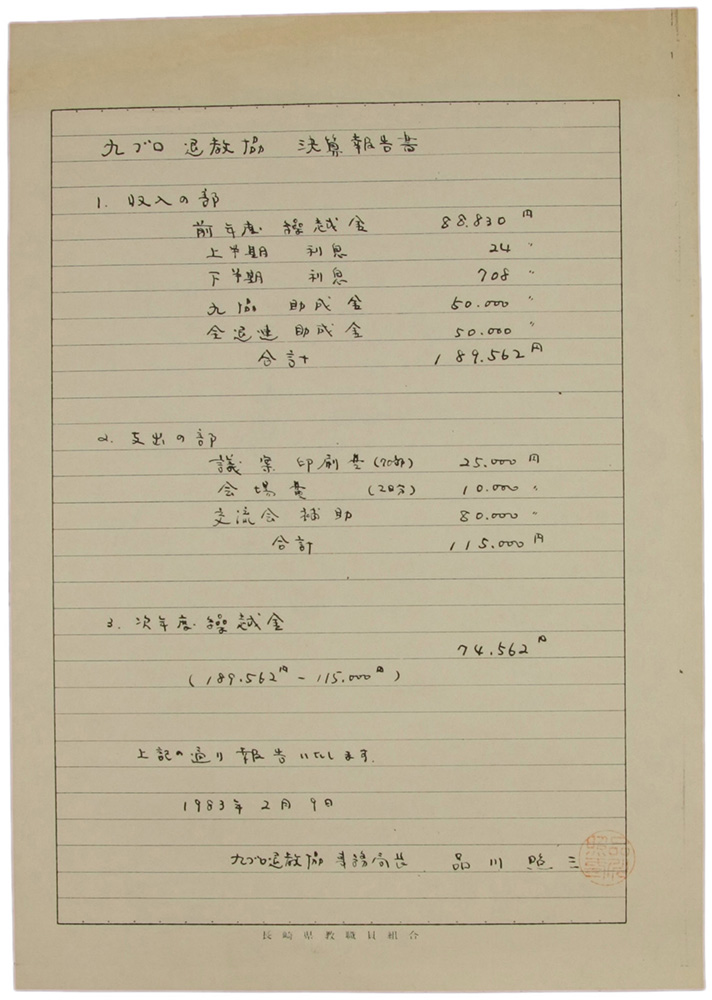 九ブロ 退教協 決算報告書
1. 収入の部
前年度繰越金 88.830円
上半期 利息 24〃
下半期 利息 708〃
九協 助成金 50.000〃
全退連 助成金 50.000〃
合計 189.562円
2. 支出の部
議案 印刷費(70部) 25.000円
会場費 (2日分) 10.000〃
交流会 補助 80.000〃
合計 115.000円
3. 次年度繰越金
74.562円
(189.562円-115.000円)
上記の通り報告いたします.
1983年2月9日
九ブロ退教協 事務局長 品川 照三
長崎県教職員組合